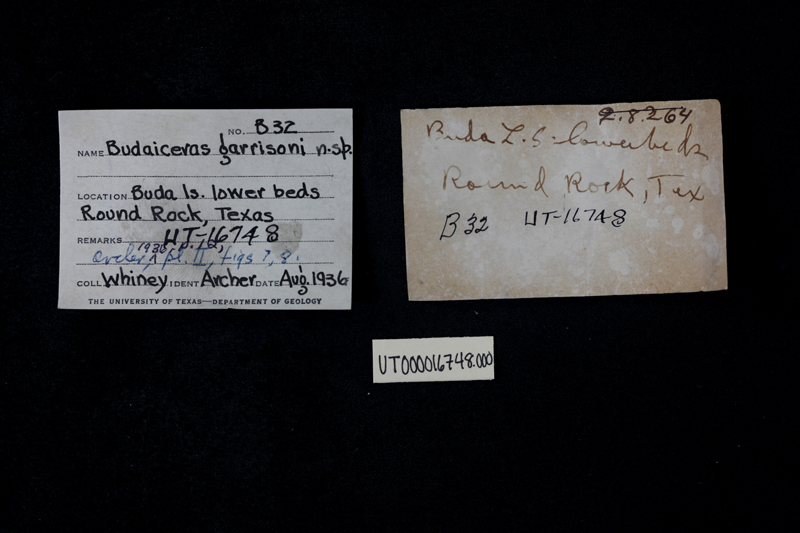 NO. B32
NAME Budaiceras garrisoni n.sp.
LOCATION Buda ls. lower beds
Round Rock, Texas
REMARKS UT-16748
1936, p. 12,
pl. II, figs 7, 8.
COLL. Whiney IDENT Archer DATE Aug. 1936
THE UNIVERSITY OF TEXAS—DEPARTMENT OF GEOLOGY
2.8.264
Buda L.S. lower beds
Round Rock, Tex
B 32 UT-16748
UT000016748.000